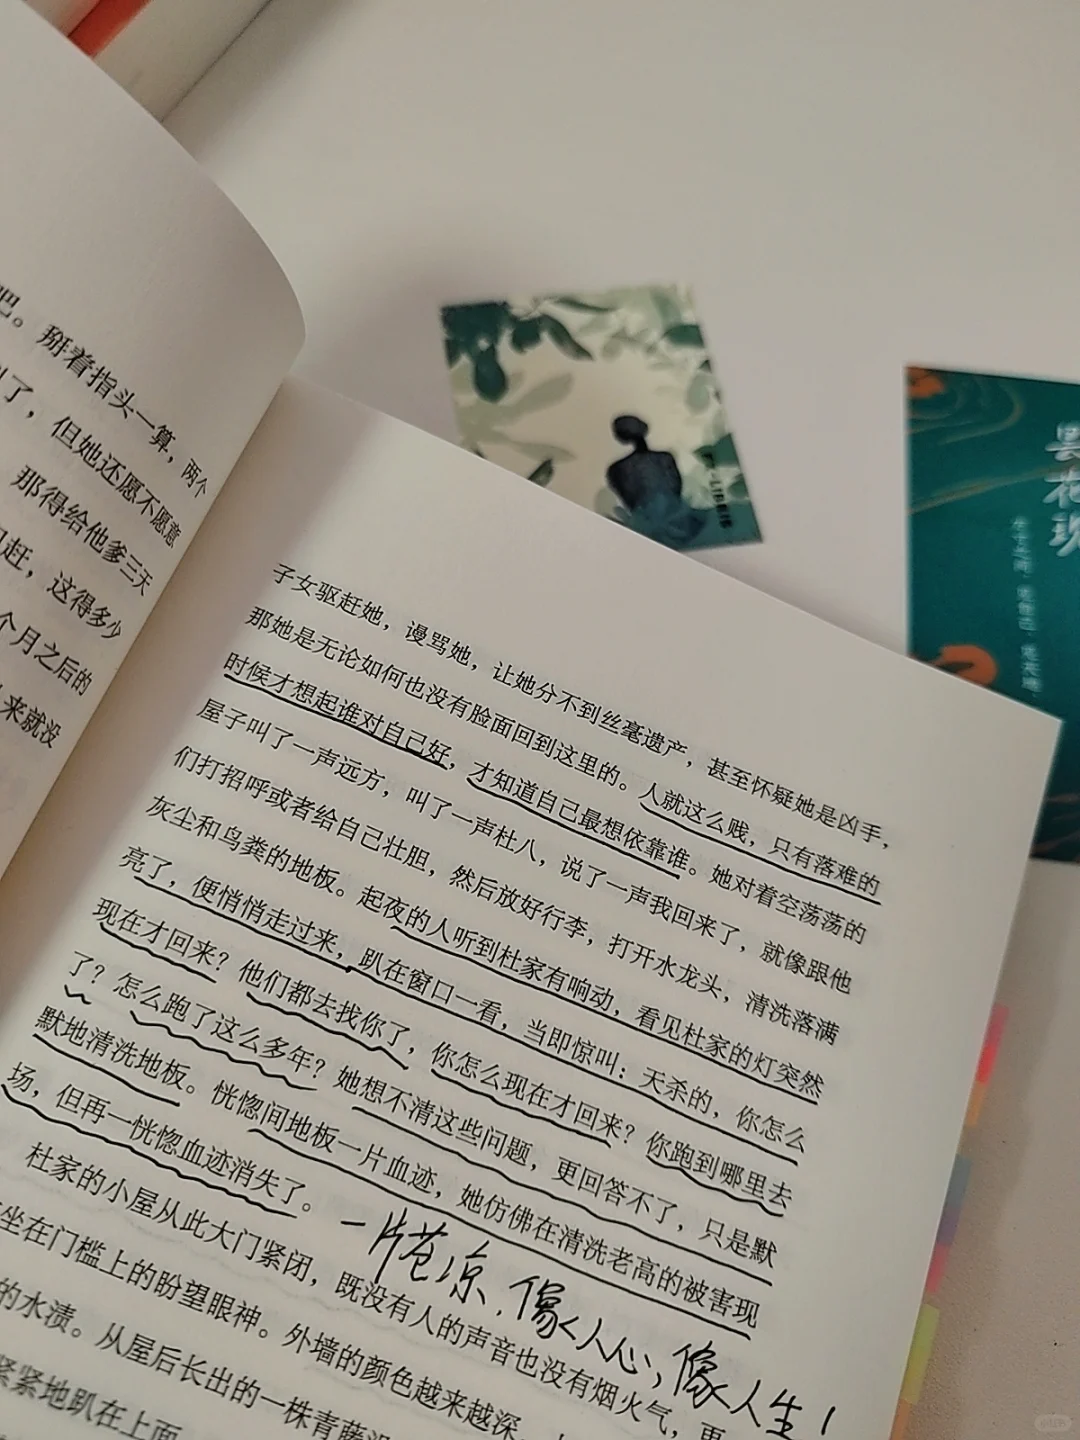 吧。掰着指头一算，两个
了，但她还愿不愿意
那得给他爹三天
赶，这得多少
个月之后的
来就没
子女驱赶她，谩骂她，让她分不到丝毫遗产，甚至怀疑她是凶手，
那她是无论如何也没有脸面回到这里的。人就这么贱，只有落难的
时候才想起谁对自己好，才知道自己最想依靠谁。她对着空荡荡的
屋子叫了一声远方，叫了一声杜八，说了一声我回来了，就像跟他
们打招呼或者给自己壮胆，然后放好行李，打开水龙头，清洗落满
灰尘和鸟粪的地板。起夜的人听到杜家有响动，看见杜家的灯突然
亮了，便悄悄走过来，趴在窗口一看，当即惊叫：天杀的，你怎么
现在才回来？他们都去找你了，你怎么现在才回来？你跑到哪里去
了？怎么跑了这么多年？她想不清这些问题，更回答不了，只是默
默地清洗地板。恍惚间地板一片血迹，她仿佛在清洗老高的被害现
场，但再一恍惚血迹消失了。
一片苍凉，像人心，像人生！
杜家的小屋从此大门紧闭，既没有人的声音也没有烟火气，更
坐在门槛上的盼望眼神。外墙的颜色越来越深，
的水渍。从屋后长出的一株青藤
紧紧地趴在上面
EX-LIBRIS
昙花现